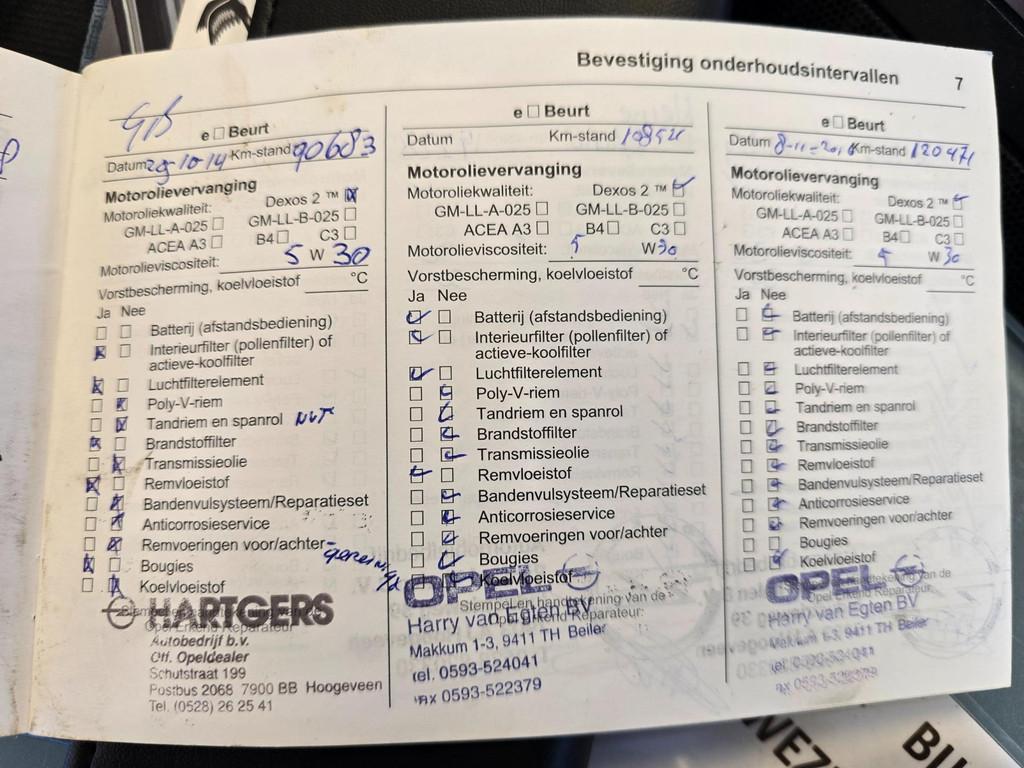 Bevestiging onderhoudsintervallen 7
e ☐ Beurt
Datum 29-10-14 Km-stand 90683
Motorolievervanging
Motoroliekwaliteit: Dexos 2 ™ ☒
GM-LL-A-025 ☐ GM-LL-B-025 ☐
ACEA A3 ☐ B4 ☐ C3 ☐
Motorolieviscositeit: 5 W 30
Vorstbescherming, koelvloeistof °C
Ja Nee
☐ ☐ Batterij (afstandsbediening)
☒ ☐ Interieurfilter (pollenfilter) of
actieve-koolfilter
☒ ☐ Luchtfilterelement
☐ ☒ Poly-V-riem
☐ ☒ Tandriem en spanrol NVT
☒ ☐ Brandstoffilter
☐ ☒ Transmissieolie
☒ ☐ Remvloeistof
☐ ☒ Bandenvulsysteem/Reparatieset
☐ ☒ Anticorrosieservice
☐ ☒ Remvoeringen voor/achter
☒ ☐ Bougies
☐ ☒ Koelvloeistof
Stempel en handtekening van de
Opel Erkend Reparateur:
HARTGERS
Autobedrijf b.v.
Off. Opeldealer
Schutstraat 199
Postbus 2068 7900 BB Hoogeveen
Tel. (0528) 26 25 41
e ☐ Beurt
Datum Km-stand
Motorolievervanging
Motoroliekwaliteit: Dexos 2 ™ ☑
GM-LL-A-025 ☐ GM-LL-B-025 ☐
ACEA A3 ☐ B4 ☐ C3 ☐
Motorolieviscositeit: 5 W 30
Vorstbescherming, koelvloeistof °C
Ja Nee
☑ ☐ Batterij (afstandsbediening)
☑ ☐ Interieurfilter (pollenfilter) of
actieve-koolfilter
☑ ☐ Luchtfilterelement
☐ ☑ Poly-V-riem
☐ ☑ Tandriem en spanrol
☐ ☑ Brandstoffilter
☐ ☑ Transmissieolie
☑ ☐ Remvloeistof
☐ ☑ Bandenvulsysteem/Reparatieset
☐ ☑ Anticorrosieservice
☐ ☑ Remvoeringen voor/achter
☐ ☑ Bougies
☐ ☑ Koelvloeistof
Stempel en handtekening van de
Opel Erkend Reparateur:
OPEL
Harry van Egten BV
Makkum 1-3, 9411 TH Beilen
tel. 0593-524041
fax 0593-522379
e ☐ Beurt
Datum 8-11-2016 Km-stand 120471
Motorolievervanging
Motoroliekwaliteit: Dexos 2 ™ ☑
GM-LL-A-025 ☐ GM-LL-B-025 ☐
ACEA A3 ☐ B4 ☐ C3 ☐
Motorolieviscositeit: 5 W 30
Vorstbescherming, koelvloeistof °C
Ja Nee
☐ ☑ Batterij (afstandsbediening)
☐ ☑ Interieurfilter (pollenfilter) of
actieve-koolfilter
☐ ☑ Luchtfilterelement
☐ ☑ Poly-V-riem
☐ ☑ Tandriem en spanrol
☐ ☑ Brandstoffilter
☐ ☑ Transmissieolie
☐ ☑ Remvloeistof
☐ ☑ Bandenvulsysteem/Reparatieset
☐ ☑ Anticorrosieservice
☐ ☑ Remvoeringen voor/achter
☐ ☐ Bougies
☐ ☑ Koelvloeistof
Stempel en handtekening van de
Opel Erkend Reparateur:
OPEL
Harry van Egten BV
Makkum 1-3, 9411 TH Beilen
tel. 0593-524041
fax 0593-522379